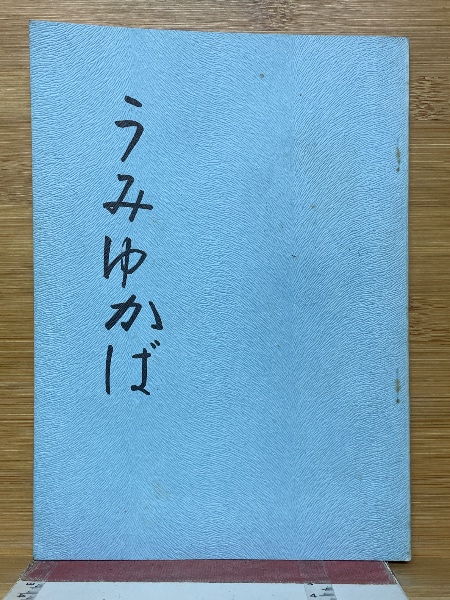 うみゆかば